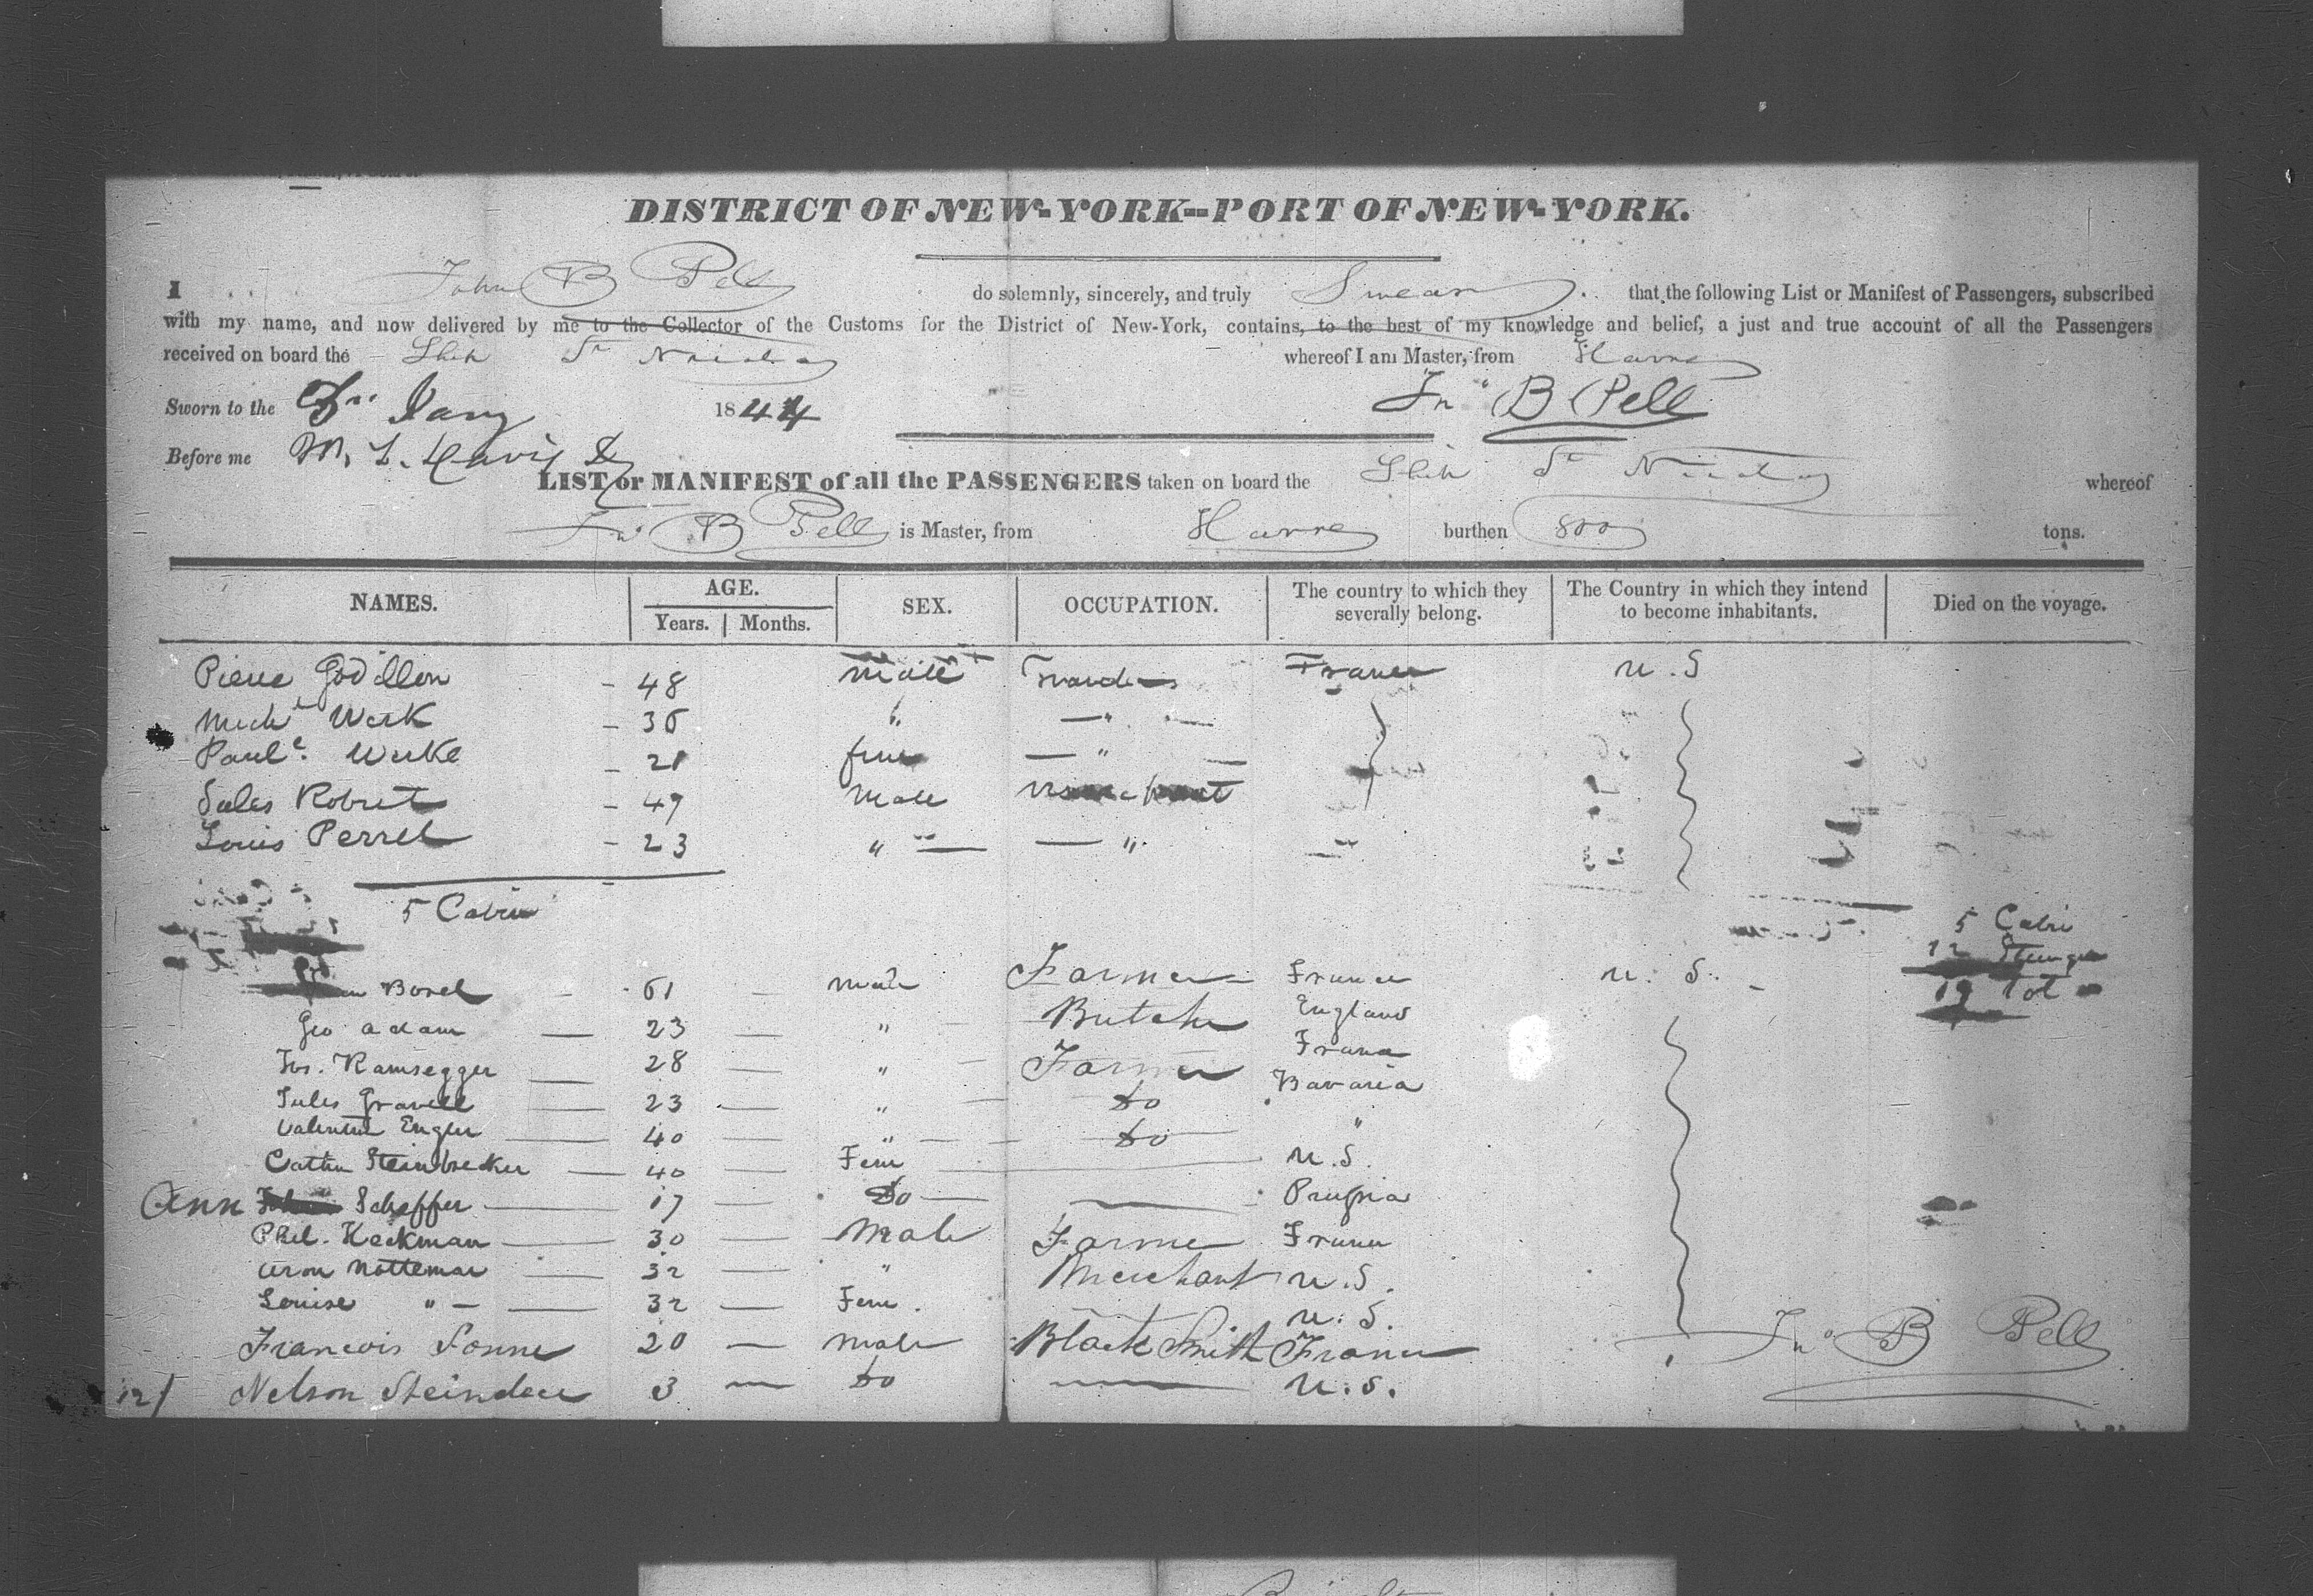 DISTRICT OF NEW-YORK--PORT OF NEW-YORK.
I John B Pell do solemnly, sincerely, and truly Swear that the following List or Manifest of Passengers, subscribed
with my name, and now delivered by me to the Collector of the Customs for the District of New-York, contains, to the best of my knowledge and belief, a just and true account of all the Passengers
received on board the Ship St Nicholas whereof I am Master, from Havre
Sworn to the Jany 1844 Jno B Pell
Before me M. L. Davis
LIST or MANIFEST of all the PASSENGERS taken on board the Ship St Nicholas whereof
Jno B Pell is Master, from Havre burthen 800 tons.
NAMES. AGE. SEX. OCCUPATION. The country to which they severally belong. The Country in which they intend to become inhabitants. Died on the voyage.
Years. Months.
Pierre Godillon - 48 Male France U.S
Michl Werk - 36 "  — " —
Paule. Werke - 21 fem — " —
Jules Robret - 47 Male
Louis Perret - 23 " — — "
5 Cabin 5 Cabin
12
Borel - 61 — Male Farmer France U.S.
Geo Adam — 23 — " Butcher England
Jos. Ramsegger — 28 — " Farmer France
Jules Gravell — 23 — " Do Bavaria
Valentin Engler — 40 " — Do "
Cathn Steinbrecker — 40 — Fem — U.S.
Ann Scheffer — 17 — Do — — Prussia
Phil. Heckman — 30 — Male Farmer France
Aron Notteman — 32 — " Merchant U.S.
Louise " — 32 — Fem. U.S.
Francois Sonne 20 — Male Black Smith France Jno B Pell
12/ Nelson 3 — Do — U.S.